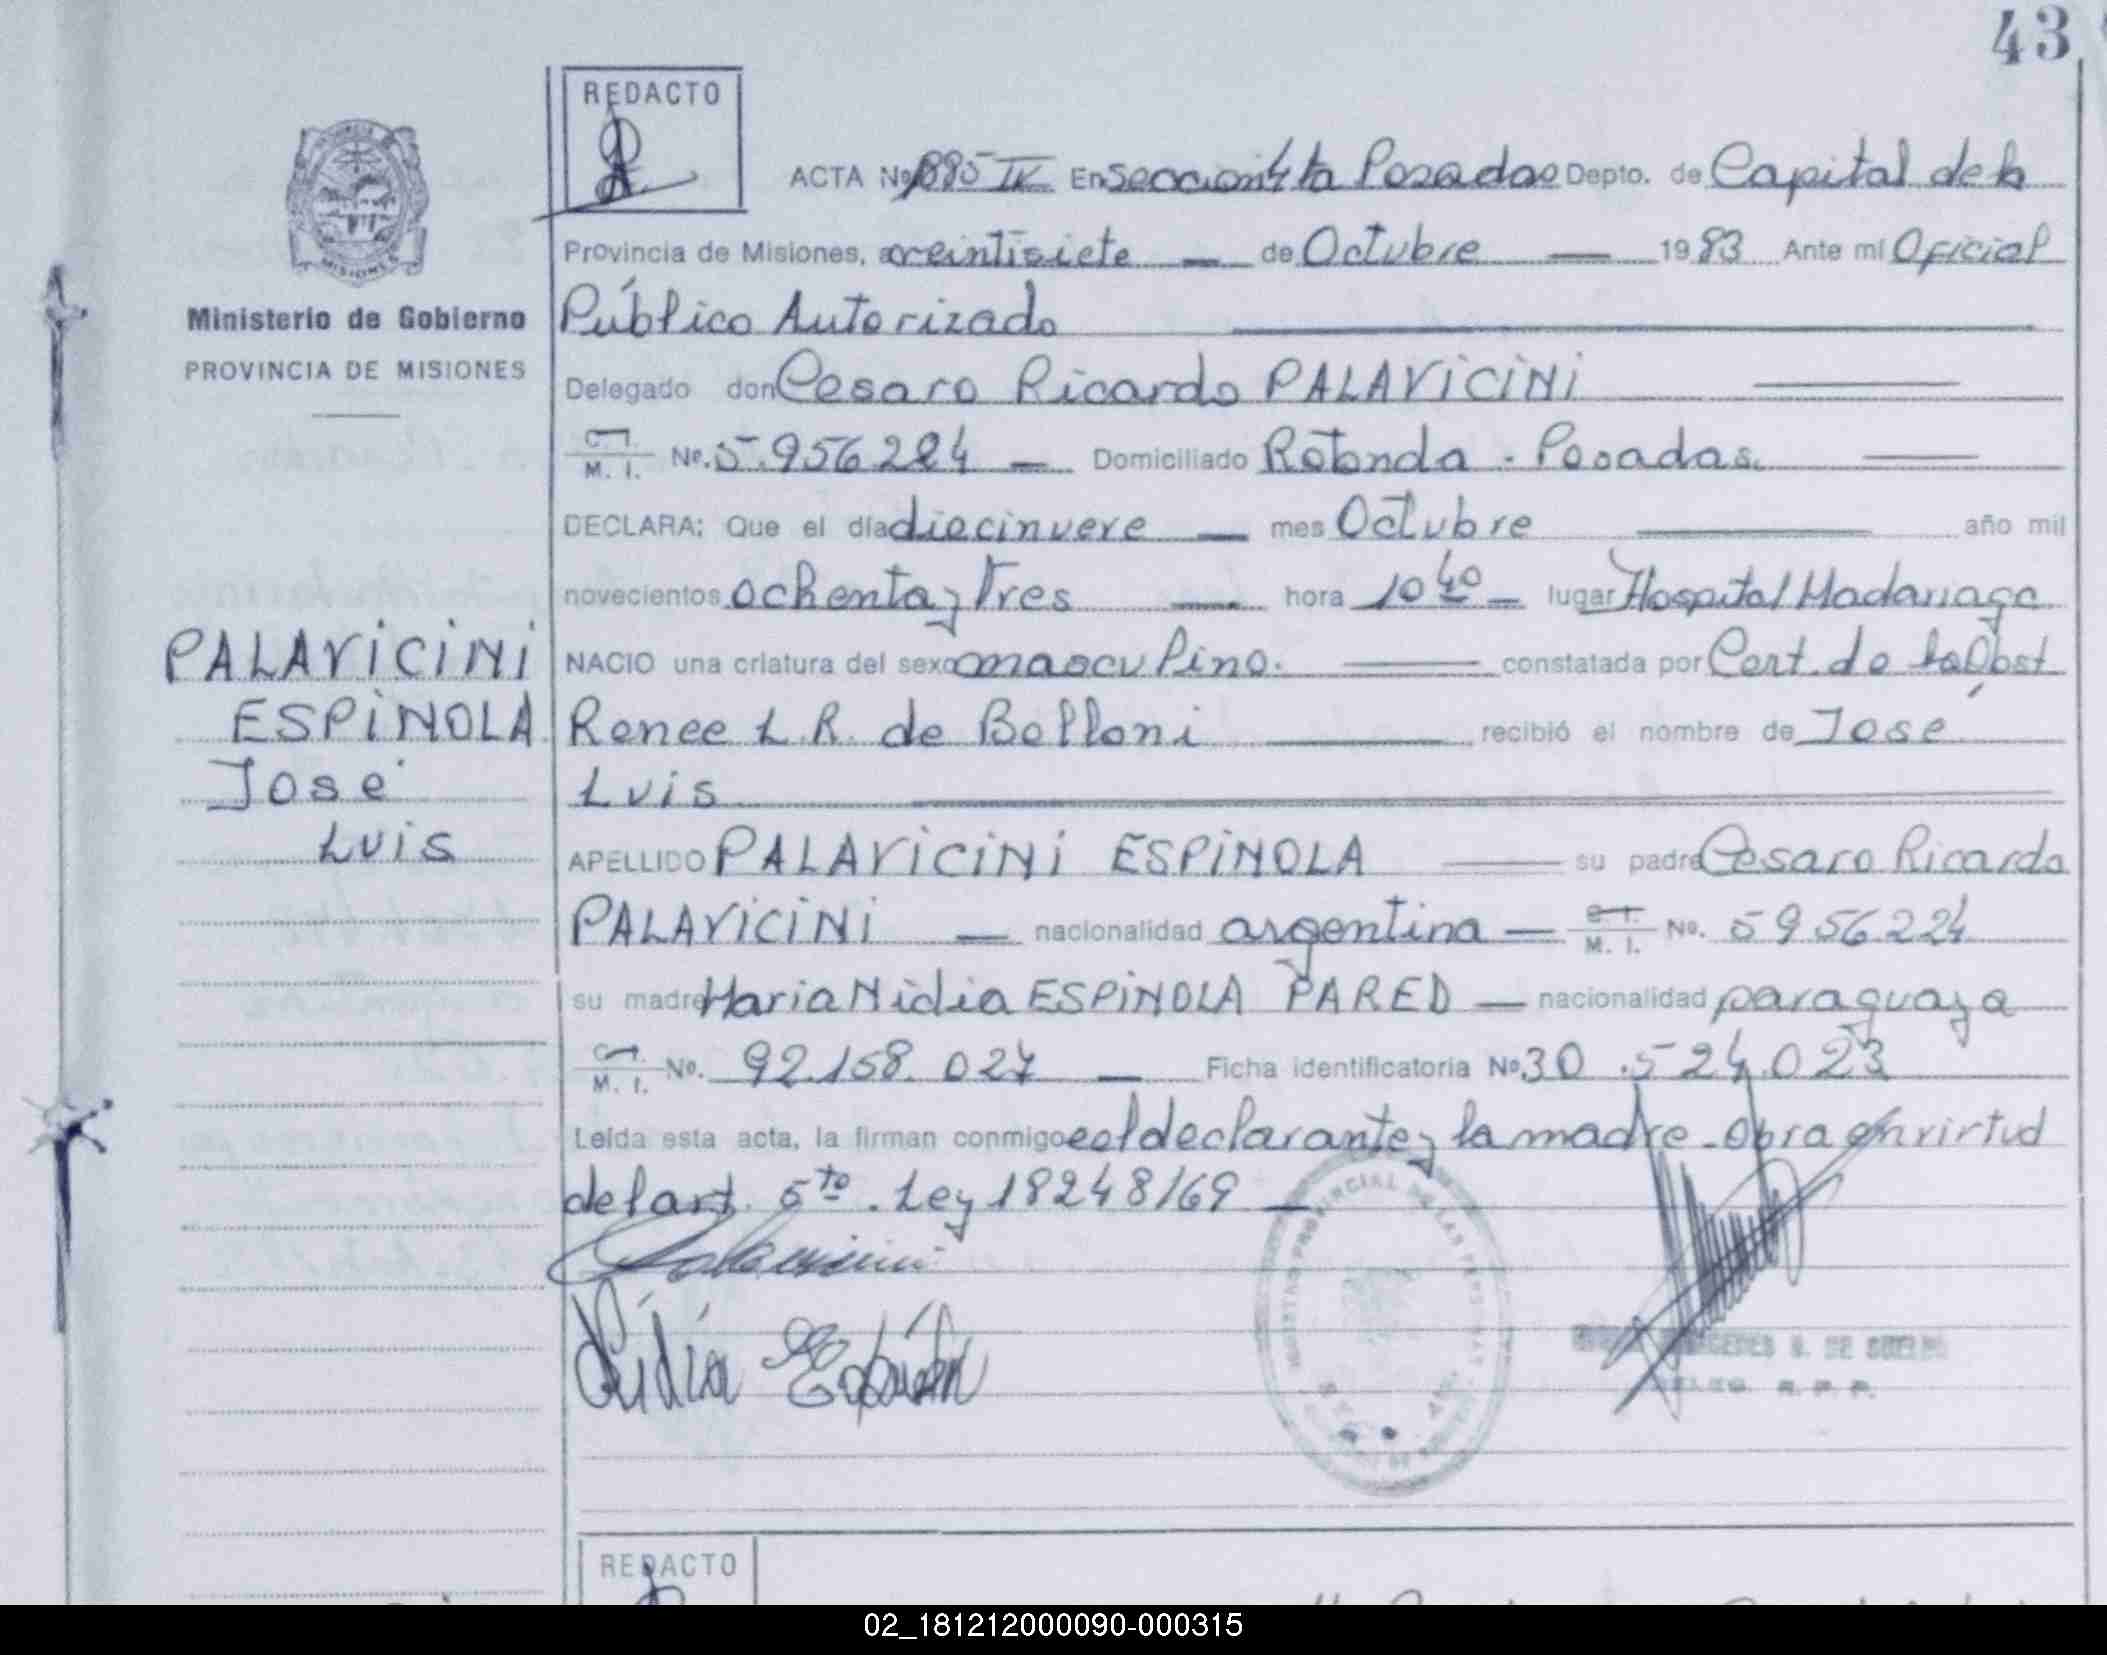 43
REDACTO
ACTA Nº 885 IV En Sección 4ta Posadas Depto. de Capital de la
Provincia de Misiones, a veintisiete — de Octubre — 1983 Ante mí Oficial
Ministerio de Gobierno
Público Autorizado
PROVINCIA DE MISIONES
Delegado don Cesaro Ricardo PALAVICINI
C.I.
M. I. Nº. 5.956224 — Domiciliado Rotonda - Posadas.
DECLARA: Que el día diecinueve — mes Octubre — año mil
novecientos ochenta y Tres — hora 10 40 — lugar Hospital Madariaga
PALAVICINI
NACIO una criatura del sexo masculino. — constatada por Cert. de la Obst
ESPINOLA
Renee L.R. de Belloni — recibió el nombre de José
José
Luis
Luis
APELLIDO PALAVICINI ESPINOLA — su padre Cesaro Ricardo
PALAVICINI — nacionalidad argentina — C.I.
M. I. Nº. 5956224
su madre Maria Nidia ESPINOLA PARED — nacionalidad paraguaya
C.I.
M. I. Nº. 92.158.027 — Ficha identificatoria Nº 30.524.023
Leída esta acta, la firman conmigo el declarante y la madre - Obra en virtud
del art. 5to. Ley 18248/69 —
Palavicini
DE LAS PERSONAS
R. P. P.
REDACTO
02_181212000090-000315